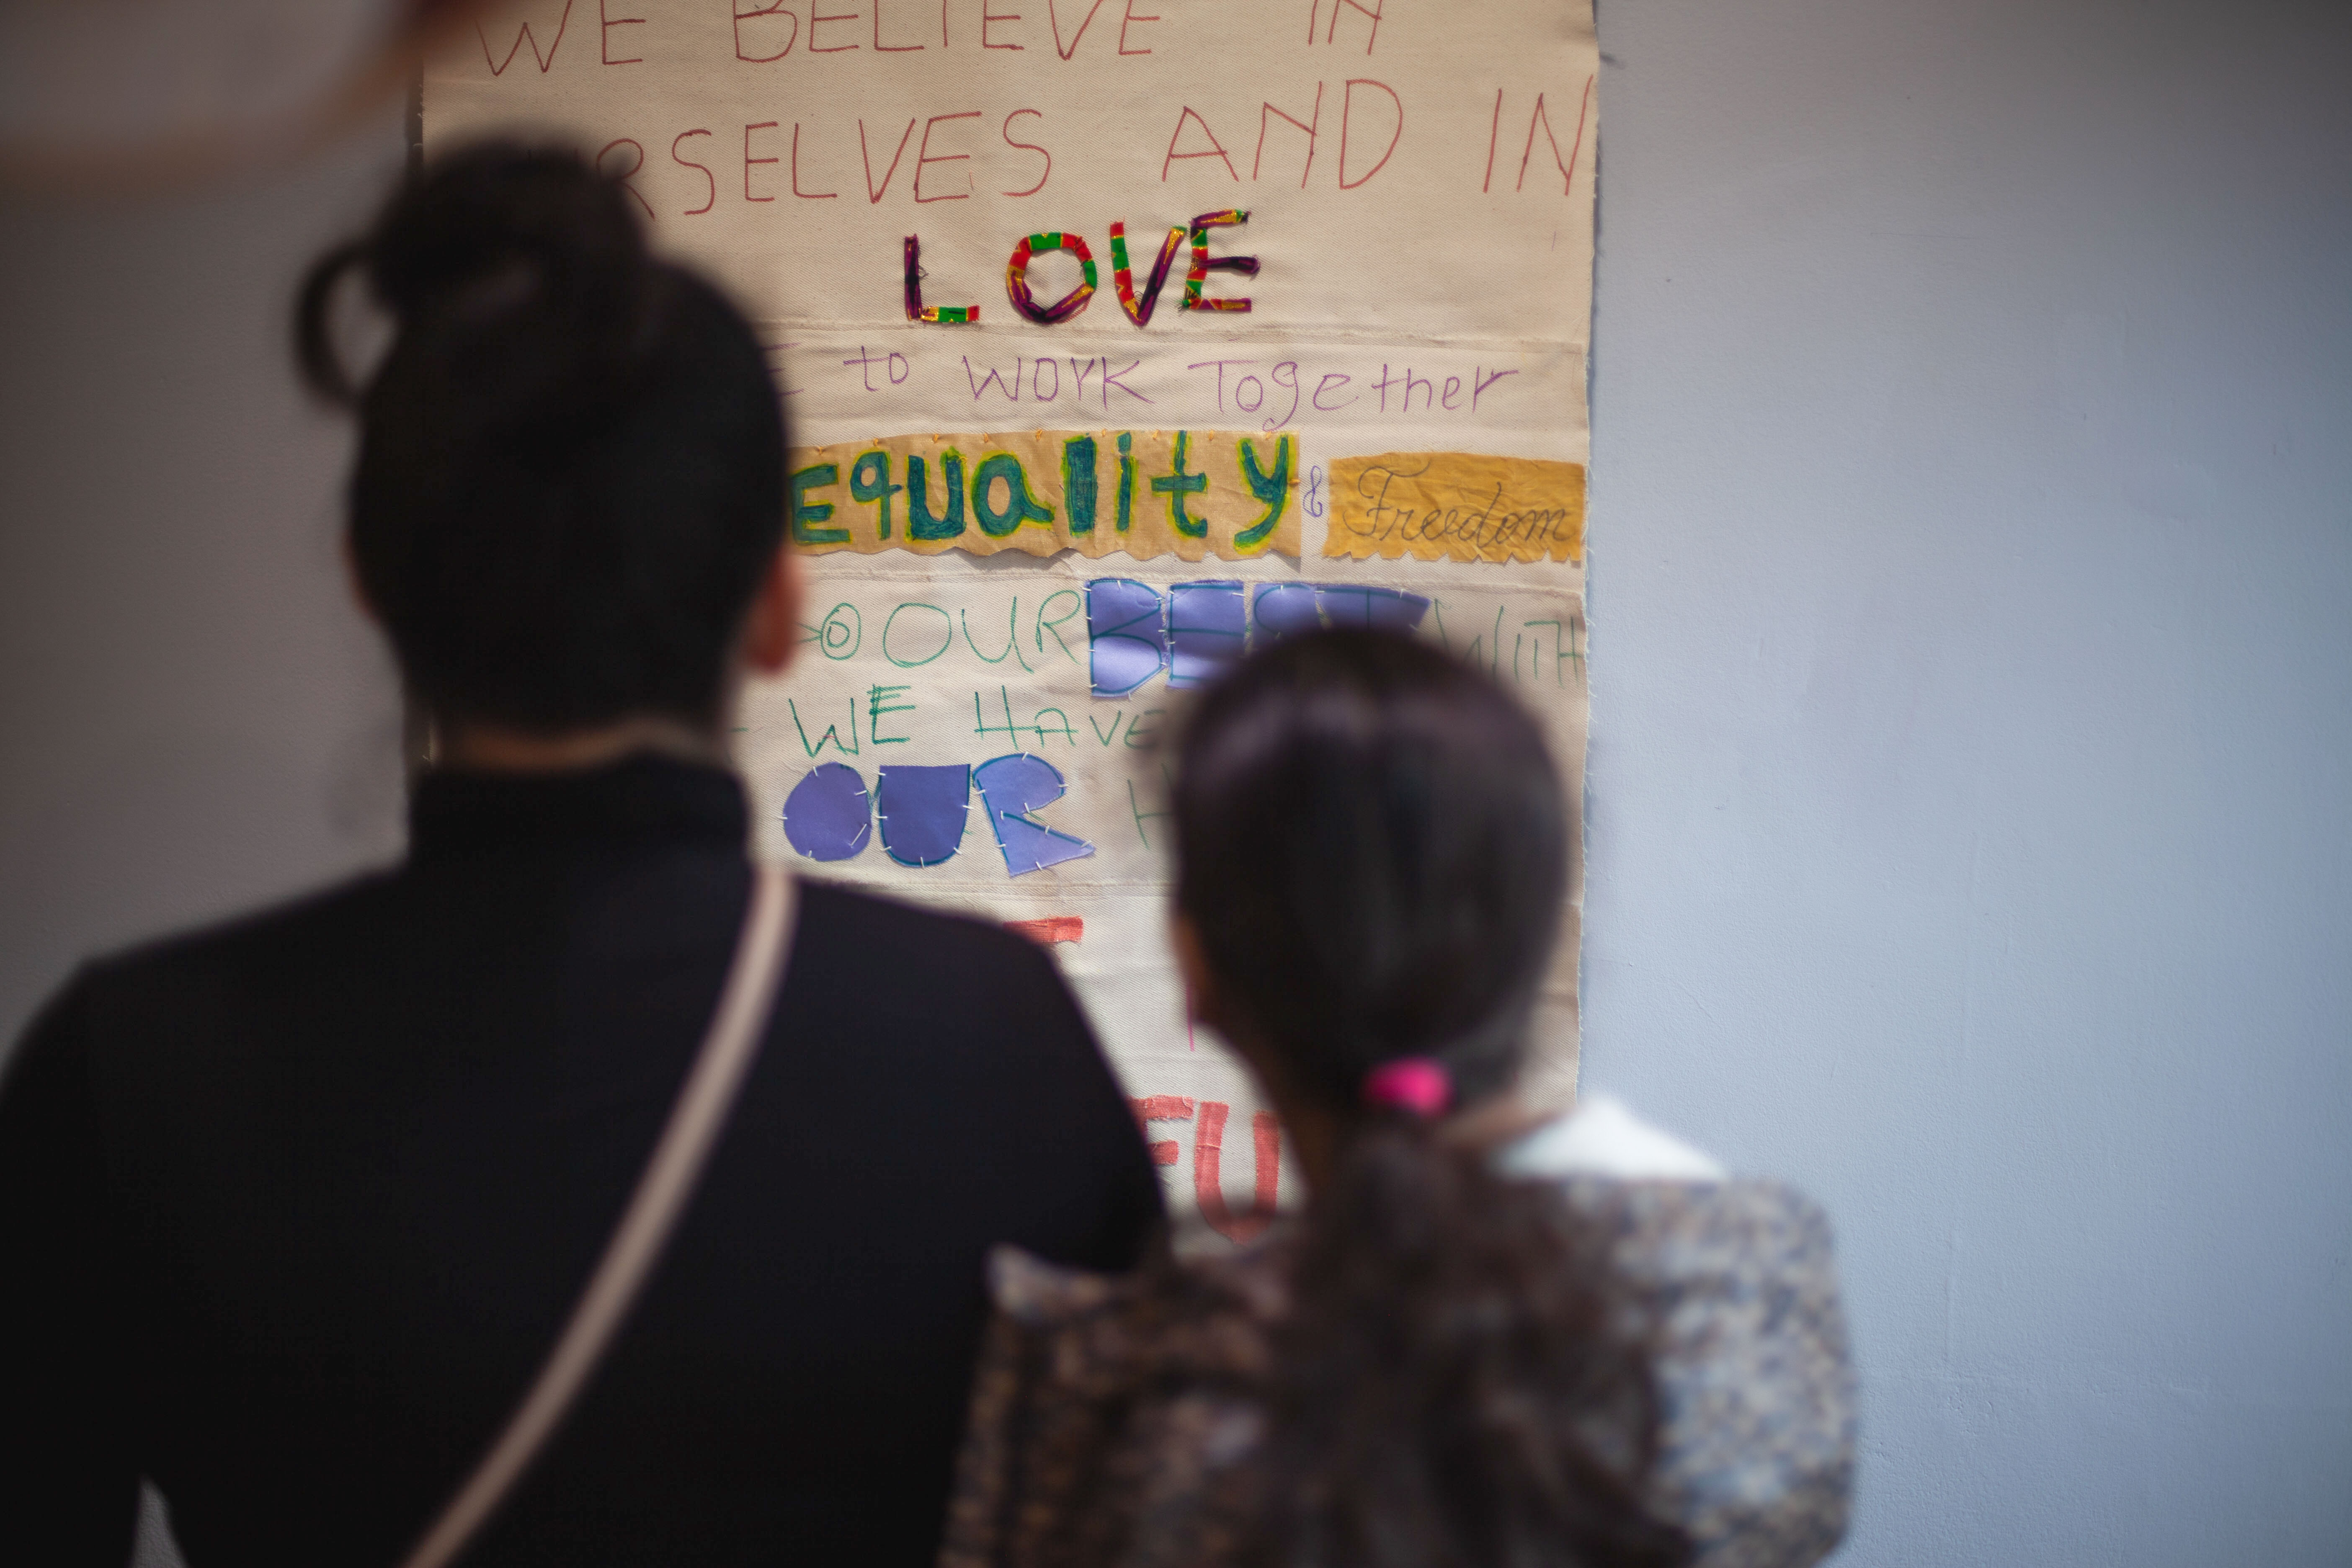 WE BELIEVE IN
RSELVES AND IN
LOVE
E to WORK Together
Equality & Freedom
DO OUR BEST WITH
WE HAVE
OUR H
T
FU